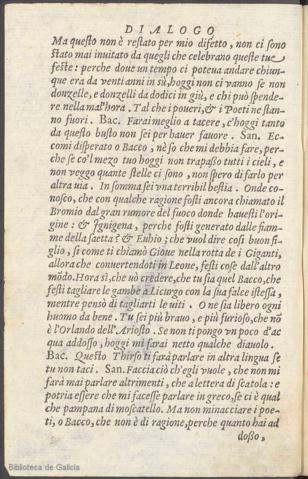 DIALOGO
Ma questo non è restato per mio difetto, non ci sono
stato mai inuitato da quegli che celebrano queste tue
feste: perche doue un tempo ci poteua andare chiun-
que era da venti anni in sù, hoggi non ci vanno se non
donzelle, e donzelli da dodici in giù, e chi può spende-
re nella mal'hora. Tal che i poueri, & i Poeti ne stan-
no fuori. Bac. Farai meglio a tacere, c'hoggi tanto
da questo busto non sei per hauer fauore. San. Ec-
comi disperato o Bacco, nè so che mi debbia fare, per-
che se co'l mezo tuo hoggi non trapasso tutti i cieli, e
non veggo quante stelle ci sono, non spero di farlo per
altra uia. In somma sei vna terribil bestia. Onde co-
nosco, che con qualche ragione fosti ancora chiamato il
Bromio dal gran rumore del fuoco donde hauesti l'ori-
gine: & Ignigena, perche fosti generato dalle fiam-
me della saetta: & Euhio; che vuol dire così buon fi-
glio, sì come ti chiamò Gioue nella rotta de i Giganti,
allora che conuertendoti in Leone, festi cose dall'altro
mõdo. Hora sì, che nõ credere, che tu sia quel Bacco, che
festi tagliare le gambe a Licurgo con la sua falce istessa,
mentre pensò di tagliarti le uiti. O ne sia libero ogni
huomo da bene. Tu sei più brauo, e più furioso, che nõ
è l'Orlando dell'Ariosto. Se non ti pongo vn poco d'ac
qua addosso, hoggi mi farai netto qualche diauolo.
Bac. Questo Thirso ti farà parlare in altra lingua se
tu non taci. San. Faccia ciò ch'egli vuole, che non mi
farà mai parlare altrimenti, che a lettera di scatola: e
potria essere che mi facesse parlare in greco, se ci è qual
che pampana di moscatello. Ma non minacciare i poe-
ti, o Bacco, che non è di ragione, perche quanto hai ad
dosso,
Biblioteca de Galicia